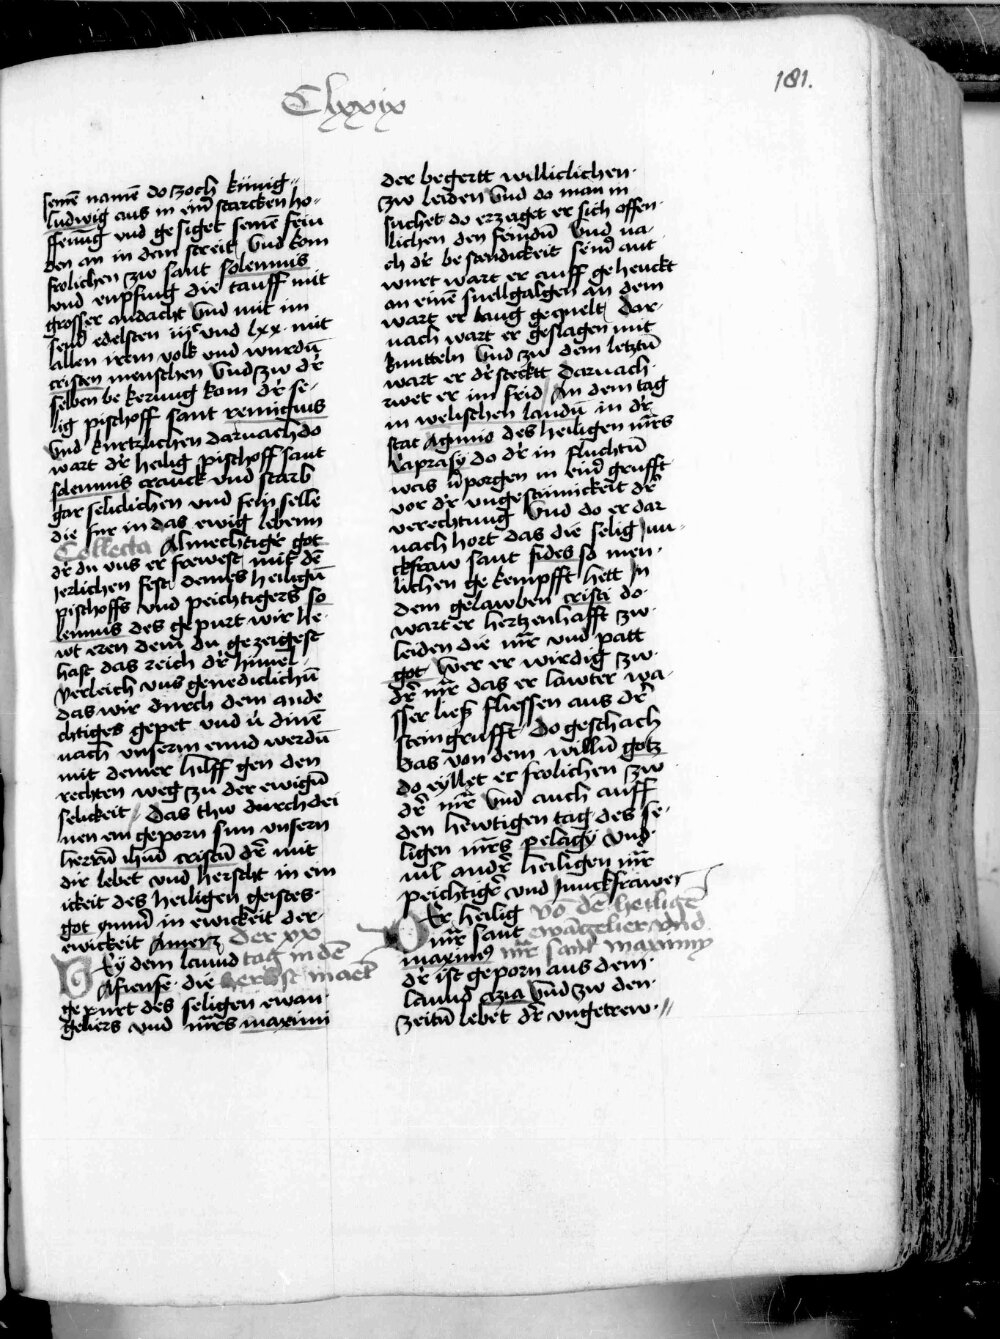 Clxxix
181.
seinē namē do zoch künig
ludwig aus in einē starcken ho-
ffenūg vnd gesiget seinē fein
den an in dem streit Vnd kom
frolichen zw sant solemnis
vnd enpfing die tauff mit
grosser andacht Vnd mit im
seind edelsten iijc vnd lxx mit
allen irem volk vnd wurdū
cristen menschen Vnd zw dr̄
selben bekerung kom dr̄ se-
lig pischoff sant remigius
Vnd kurtzlichen darnach do
wart dr̄ heilig pischoff sant
solemnis cranck vnd starb
gar seliclichen vnd sein selle
die fur in das ewig lebenn
Collecta Almechtigr̄ got
dr̄ du vns er frewest mit dē
herlichen fest deines heiligū
pischoffs vnd peichtigers so
lemnis des gepurt wir he-
wt eren dem du gezeigest
hast das reich dr̄ himel
Verleich vns genediclichū
das wir durch dem ande
chtiges gepet vnd
nach vnserm ennd werdū
mit deiner hilff gen den
rechten weg zu der ewigū
selickeit Das thw durch dei
nen ein geporn sun vnsern
herrū ihm cristū dr̄ mit
dir lebet vnd herscht in ein
ickeit des heiligen geistes
got ymmer in ewickeit der
ewickeit Amenz der xx
Ey dem lannd tag in dē
Asiense die herbst maeſ
gepurt des seligen ewan
geliers vnd mr̄s maximi
der begertt williclichen
zw leiden Vnd do man in
suchet do erzeiget er sich offen
lichen den feindū Vnd na-
ch dr̄ bestendickeit seind ant
wurt wart er auff gehenckt
an einē snellgalgen an dem
wart er lang gequelt Dar
nach wart er geslagen mit
knutteln Vnd zw dem letztū
wart er dr̄stecktt Darnach
rwet er im frid An dem tag
in welischen landū in dr̄
stat Aginno des heiligen mr̄s
Caprasy do dr̄ in fluchtū
was vporgen in eind grufft
vor dr̄ vngestümickeit dr̄
verechtung Vnd do er dar
nach hort das die selig Jun-
ckfraw sant fides so men
lichen gekempfft hett In
dem gelawben cristi do
wart er hertzenhafft zw
leiden die mr̄ vnd patt
got Wer er wirdig zw
dr̄ mr̄ das er lawter wa-
sser ließ fliessen aus dr̄
steingrufft Do geschach
das von dem willū gotz
do eyllet er frolichen zw
dr̄ mr̄ Vnd auch auff
den hewtigen tag des se-
ligen mr̄s pelagy vnd
vil andr̄ heiligen mr̄
peichtigr̄ vnd Junckfrawen
Er heilig vō dē heiligē
mr̄ sant ewāgelier vnd
maximꝰ mr̄ sant maximy
dr̄ ist geporn aus dem
lannd azia Vnd zw den
zeitū lebet dr̄ vngetrew